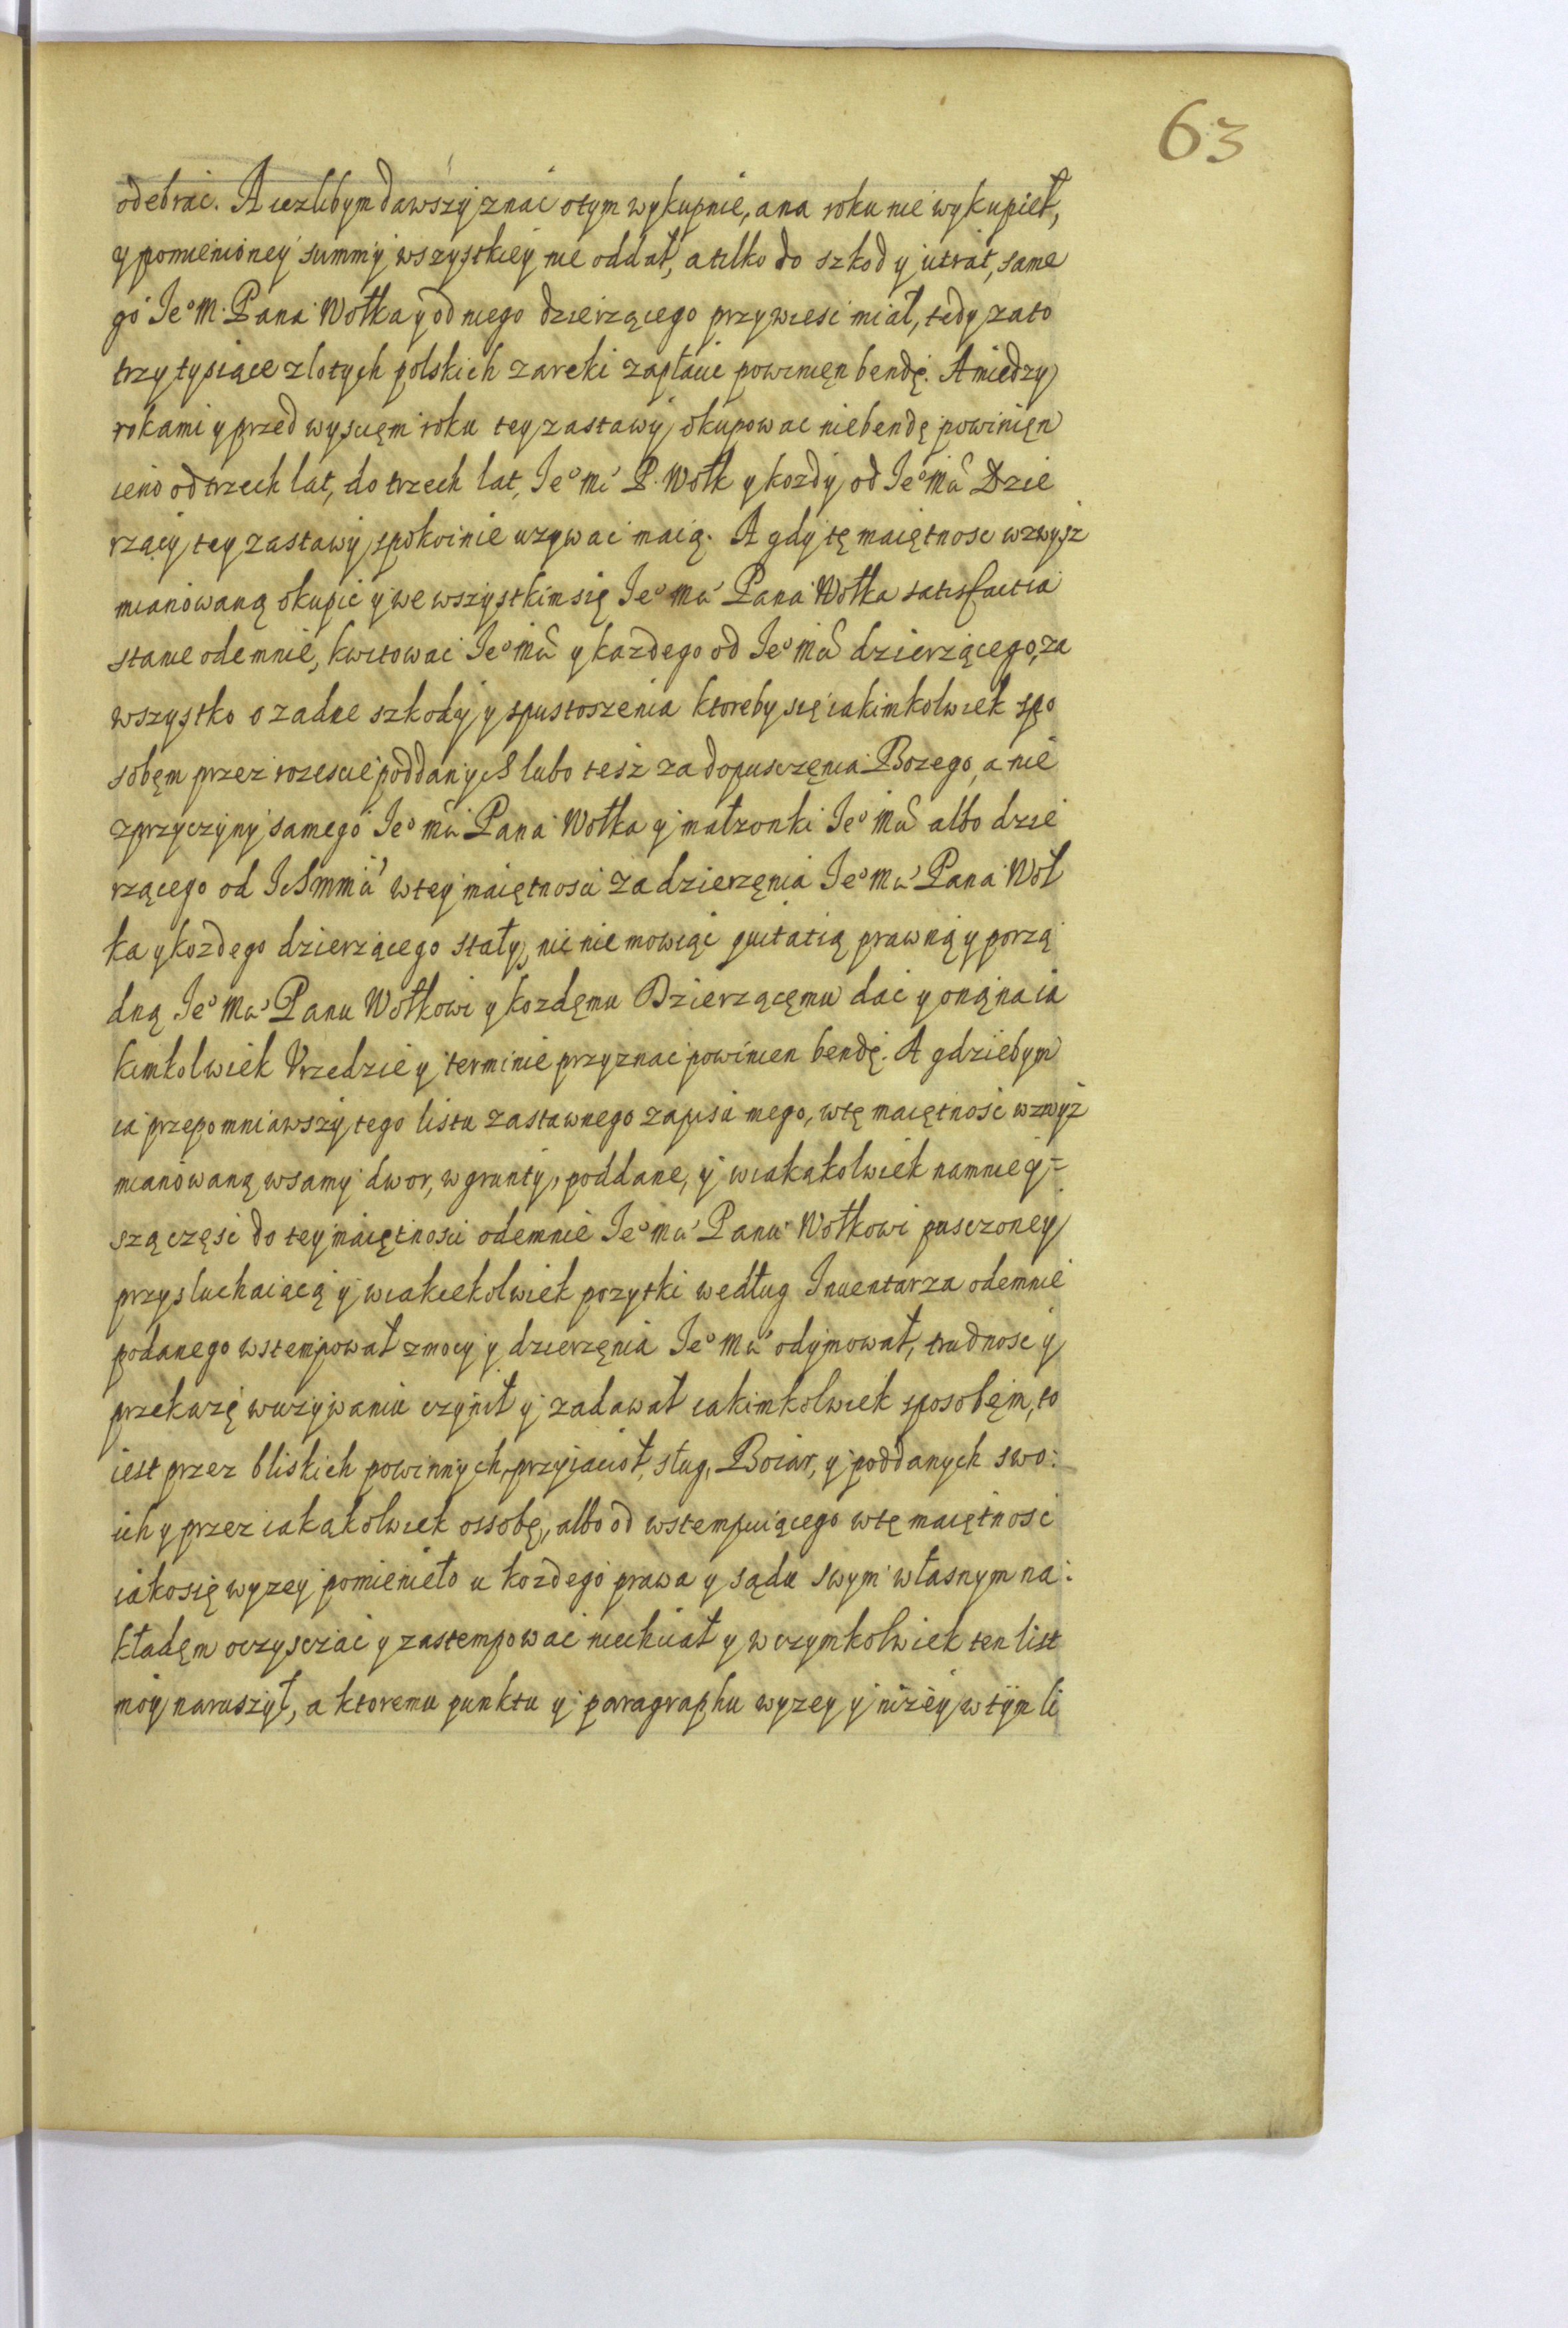 63
odebrac. A iezlibym dawszy znac otym wykupnie, ana roku nie wykupieł,
y pomienioney summy wszystkiey nie oddał, a tilko do szkod y utrat, same
go Ie° M. Pana Wołka y od niego dzierzącego przywiesc miał, tedy zato
trzy tysiące zlotych polskich zareki zapłacic powinięn bendę. A miedzy
rokami y przed wysciem roku tey zastawy okupowac niebendę powinięn
ieno od trzech lat, do trzech lat, Ie° Mci P. Wołk y kozdy od Ie° Mci Dzie
rzący tey zastawy spokoinie uzywac maią. A gdy tę maiętnosc wzwysz
mianowaną okupic y we wszystkim się Ie° Mci Pana Wołka satisfactia
stanie odemnie, kwitowac Ie° Mci y kazdego od Ie° Mci dzierzącego, za
wszystko o zadne szkody y spustoszenia ktoreby się iakimkolwiek spo
sobęm przez rozescie poddanych lubo tesz za dopusczęnia Bozego, a nie
zprzyczyny samego Ie° Mci Pana Wołka y małzonki Ie° Mci albo dzie
rzącego od Ichmm̃ wtey maiętnosci za dzierzęnia Ie° Mci Pana Woł
ka y kozdego dzierzącego stały, nic nie mowiąc quitatią prawną y porzą
dną Ie° Mci Panu Wołkowi y kozdęmu Dzierzącęmu dac y oną na ia
kimkolwiek Vrzedzie y terminie przyznac powinien bendę. A gdziebym
ia przepomniawszy tego listu zastawnego zapisu mego, wtę maiętnosc wzwyz
mianowaną wsamy dwor, w grunty, poddane, y wiakąkolwiek namniey=
szą częsc do tey maiętnosci odemnie Ie° Mci Panu Wołkowi pusczoney
przysluchaiącą y wiakiekolwiek pozytki według Inuentarza odemnie
podanego wstempował zmocy y dzierzęnia Ie° Mci odymował, trudnosc y
przekazę wuzywaniu czynił y zadawał iakimkolwiek sposobęm, to
iest przez bliskich powinnych, przyjacioł, sług, Boiar, y poddanych swo:
ich y przez iakąkolwiek ossobę, albo od wstempuiącego wtę maiętnosc
iakosię wyzey pomienieło u kozdego prawa y sądu swym własnym na:
kładęm oczysczac y zastempowac niechciał y wczymkolwiek ten list
moy naruszył, a ktoremu punktu y paragraphu wyzey y nizey wtym li